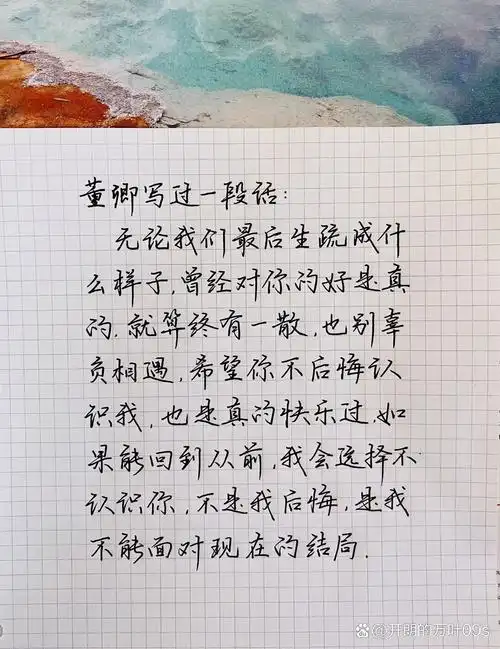 董卿写过一段话:
无论我们最后生疏成什
么样子,曾经对你的好是真
的.就算终有一散,也别辜
负相遇,希望你不后悔认
识我,也是真的快乐过.如
果能回到从前,我会选择不
认识你,不是我后悔,是我
不能面对现在的结局.
@开朗的万叶09s